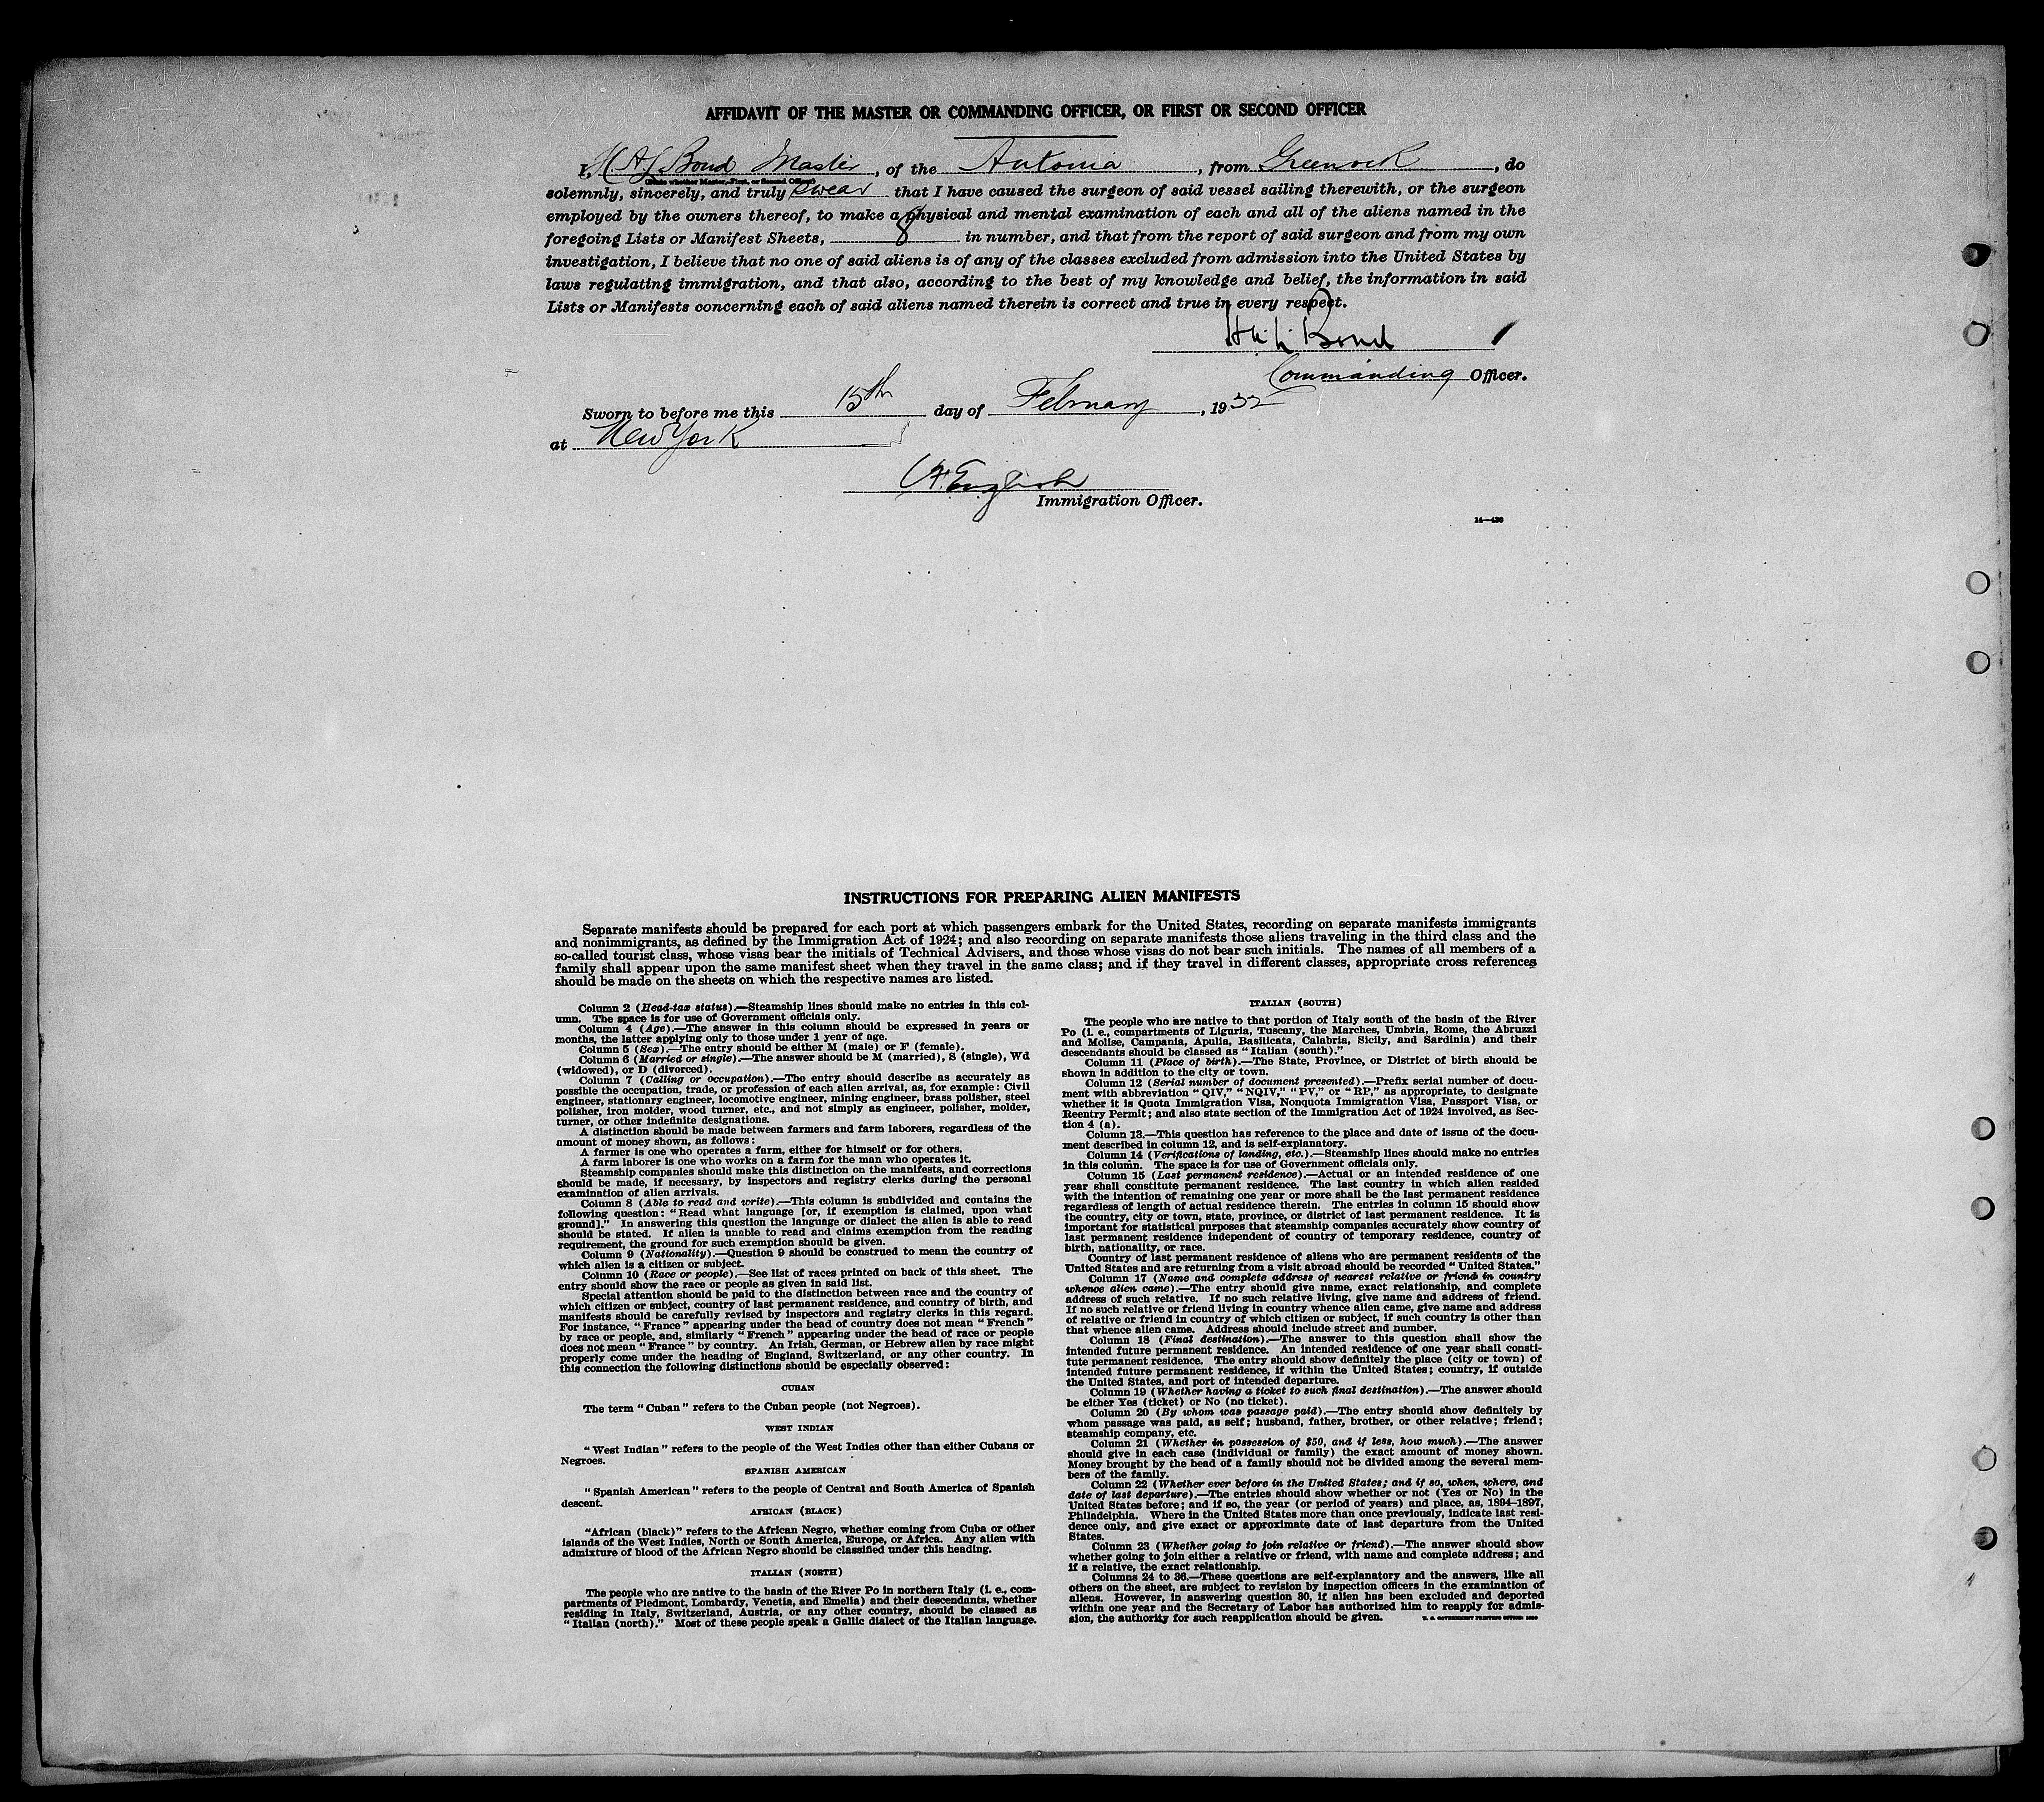 AFFIDAVIT OF THE MASTER OR COMMANDING OFFICER, OR FIRST OR SECOND OFFICER
I, H.A.L. Bond Master, of the Antonia, from Greenock, do
(State whether Master, First, or Second Officer)
solemnly, sincerely, and truly swear that I have caused the surgeon of said vessel sailing therewith, or the surgeon
employed by the owners thereof, to make a physical and mental examination of each and all of the aliens named in the
foregoing Lists or Manifest Sheets, 8 in number, and that from the report of said surgeon and from my own
investigation, I believe that no one of said aliens is of any of the classes excluded from admission into the United States by
laws regulating immigration, and that also, according to the best of my knowledge and belief, the information in said
Lists or Manifests concerning each of said aliens named therein is correct and true in every respect.
Bond
Commanding Officer.
Sworn to before me this 15th day of February, 1932
at New York
English
Immigration Officer.
14—430
INSTRUCTIONS FOR PREPARING ALIEN MANIFESTS
Separate manifests should be prepared for each port at which passengers embark for the United States, recording on separate manifests immigrants
and nonimmigrants, as defined by the Immigration Act of 1924; and also recording on separate manifests those aliens traveling in the third class and the
so-called tourist class, whose visas bear the initials of Technical Advisers, and those whose visas do not bear such initials. The names of all members of a
family shall appear upon the same manifest sheet when they travel in the same class; and if they travel in different classes, appropriate cross references
should be made on the sheets on which the respective names are listed.
Column 2 (Head-tax status).—Steamship lines should make no entries in this col-
umn. The space is for use of Government officials only.
Column 4 (Age).—The answer in this column should be expressed in years or
months, the latter applying only to those under 1 year of age.
Column 5 (Sex).—The entry should be either M (male) or F (female).
Column 6 (Married or single).—The answer should be M (married), S (single), Wd
(widowed), or D (divorced).
Column 7 (Calling or occupation).—The entry should describe as accurately as
possible the occupation, trade, or profession of each alien arrival, as, for example: Civil
engineer, stationary engineer, locomotive engineer, mining engineer, brass polisher, steel
polisher, iron molder, wood turner, etc., and not simply as engineer, polisher, molder,
turner, or other indefinite designations.
A distinction should be made between farmers and farm laborers, regardless of the
amount of money shown, as follows:
A farmer is one who operates a farm, either for himself or for others.
A farm laborer is one who works on a farm for the man who operates it.
Steamship companies should make this distinction on the manifests, and corrections
should be made, if necessary, by inspectors and registry clerks during the personal
examination of alien arrivals.
Column 8 (Able to read and write).—This column is subdivided and contains the
following question: "Read what language [or, if exemption is claimed, upon what
ground]." In answering this question the language or dialect the alien is able to read
should be stated. If alien is unable to read and claims exemption from the reading
requirement, the ground for such exemption should be given.
Column 9 (Nationality).—Question 9 should be construed to mean the country of
which alien is a citizen or subject.
Column 10 (Race or people).—See list of races printed on back of this sheet. The
entry should show the race or people as given in said list.
Special attention should be paid to the distinction between race and the country of
which citizen or subject, country of last permanent residence, and country of birth, and
manifests should be carefully revised by inspectors and registry clerks in this regard.
For instance, "France" appearing under the head of country does not mean "French"
by race or people, and, similarly "French" appearing under the head of race or people
does not mean "France" by country. An Irish, German, or Hebrew alien by race might
properly come under the heading of England, Switzerland, or any other country. In
this connection the following distinctions should be especially observed:
CUBAN
The term "Cuban" refers to the Cuban people (not Negroes).
WEST INDIAN
"West Indian" refers to the people of the West Indies other than either Cubans or
Negroes.
SPANISH AMERICAN
"Spanish American" refers to the people of Central and South America of Spanish
descent.
AFRICAN (BLACK)
"African (black)" refers to the African Negro, whether coming from Cuba or other
islands of the West Indies, North or South America, Europe, or Africa. Any alien with
admixture of blood of the African Negro should be classified under this heading.
ITALIAN (NORTH)
The people who are native to the basin of the River Po in northern Italy (i. e., com-
partments of Piedmont, Lombardy, Venetia, and Emelia) and their descendants, whether
residing in Italy, Switzerland, Austria, or any other country, should be classed as
"Italian (north)." Most of these people speak a Gallic dialect of the Italian language.
ITALIAN (SOUTH)
The people who are native to that portion of Italy south of the basin of the River
Po (i. e., compartments of Liguria, Tuscany, the Marches, Umbria, Rome, the Abruzzi
and Molise, Campania, Apulia, Basilicata, Calabria, Sicily, and Sardinia) and their
descendants should be classed as "Italian (south)."
Column 11 (Place of birth).—The State, Province, or District of birth should be
shown in addition to the city or town.
Column 12 (Serial number of document presented).—Prefix serial number of docu-
ment with abbreviation "QIV," "NQIV," "PV," or "RP," as appropriate, to designate
whether it is Quota Immigration Visa, Nonquota Immigration Visa, Passport Visa, or
Reentry Permit; and also state section of the Immigration Act of 1924 involved, as Sec-
tion 4 (a).
Column 13.—This question has reference to the place and date of issue of the docu-
ment described in column 12, and is self-explanatory.
Column 14 (Verifications of landing, etc.).—Steamship lines should make no entries
in this column. The space is for use of Government officials only.
Column 15 (Last permanent residence).—Actual or an intended residence of one
year shall constitute permanent residence. The last country in which alien resided
with the intention of remaining one year or more shall be the last permanent residence
regardless of length of actual residence therein. The entries in column 15 should show
the country, city or town, state, province, or district of last permanent residence. It is
important for statistical purposes that steamship companies accurately show country of
last permanent residence independent of country of temporary residence, country of
birth, nationality, or race.
Country of last permanent residence of aliens who are permanent residents of the
United States and are returning from a visit abroad should be recorded "United States."
Column 17 (Name and complete address of nearest relative or friend in country
whence alien came).—The entry should give name, exact relationship, and complete
address of such relative. If no such relative living, give name and address of friend.
If no such relative or friend living in country whence alien came, give name and address
of relative or friend in country of which citizen or subject, if such country is other than
that whence alien came. Address should include street and number.
Column 18 (Final destination).—The answer to this question shall show the
intended future permanent residence. An intended residence of one year shall consti-
tute permanent residence. The entry should show definitely the place (city or town) of
intended future permanent residence, if within the United States; country, if outside
the United States, and port of intended departure.
Column 19 (Whether having a ticket to such final destination).—The answer should
be either Yes (ticket) or No (no ticket).
Column 20 (By whom was passage paid).—The entry should show definitely by
whom passage was paid, as self; husband, father, brother, or other relative; friend;
steamship company, etc.
Column 21 (Whether in possession of $50, and if less, how much).—The answer
should give in each case (individual or family) the exact amount of money shown.
Money brought by the head of a family should not be divided among the several mem-
bers of the family.
Column 22 (Whether ever before in the United States; and if so, when, where, and
date of last departure).—The entries should show whether or not (Yes or No) in the
United States before; and if so, the year (or period of years) and place, as, 1894-1897,
Philadelphia. Where in the United States more than once previously, indicate last resi-
dence only, and give exact or approximate date of last departure from the United
States.
Column 23 (Whether going to join relative or friend).—The answer should show
whether going to join either a relative or friend, with name and complete address; and
if a relative, the exact relationship.
Columns 24 to 36.—These questions are self-explanatory and the answers, like all
others on the sheet, are subject to revision by inspection officers in the examination of
aliens. However, in answering question 30, if alien has been excluded and deported
within one year and the Secretary of Labor has authorized him to reapply for admis-
sion, the authority for such reapplication should be given.
U. S. GOVERNMENT PRINTING OFFICE: